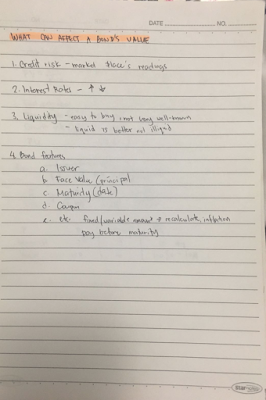 DATE NO
WHAT CAN AFFECT A BOND'S VALUE
1. Credit risk - market place's readings
2. Interest Rates - ↑ ↓
3. Liquidity - easy to buy, not very well-known
- liquid is better vs. illiquid
4. Bond features
a. Issuer
b. Face Value (principal
c. Maturity (date)
d. Coupon
e. etc fixed/variable amount → recalculate, inflation
pay before maturity